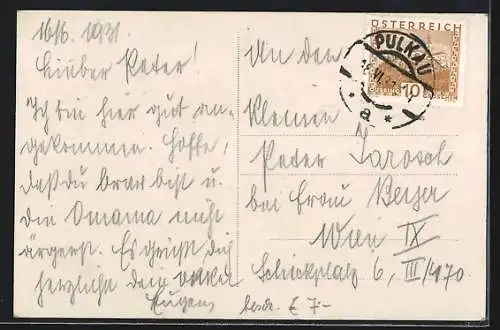 16/6. 1931.
Lieber Peter!
Ich bin hier gut an-
gekommen. Hoffe,
daß du brav bist u.
die Omama nicht
ärgerst. Es grüßt dich
herzlichst dein Onkel
Eugen
An den
kleinen
Peter Jarosch
bei Frau Beyer
Wien IX
6, III/170.
ÖSTERREICH
PULKAU
10
* a *